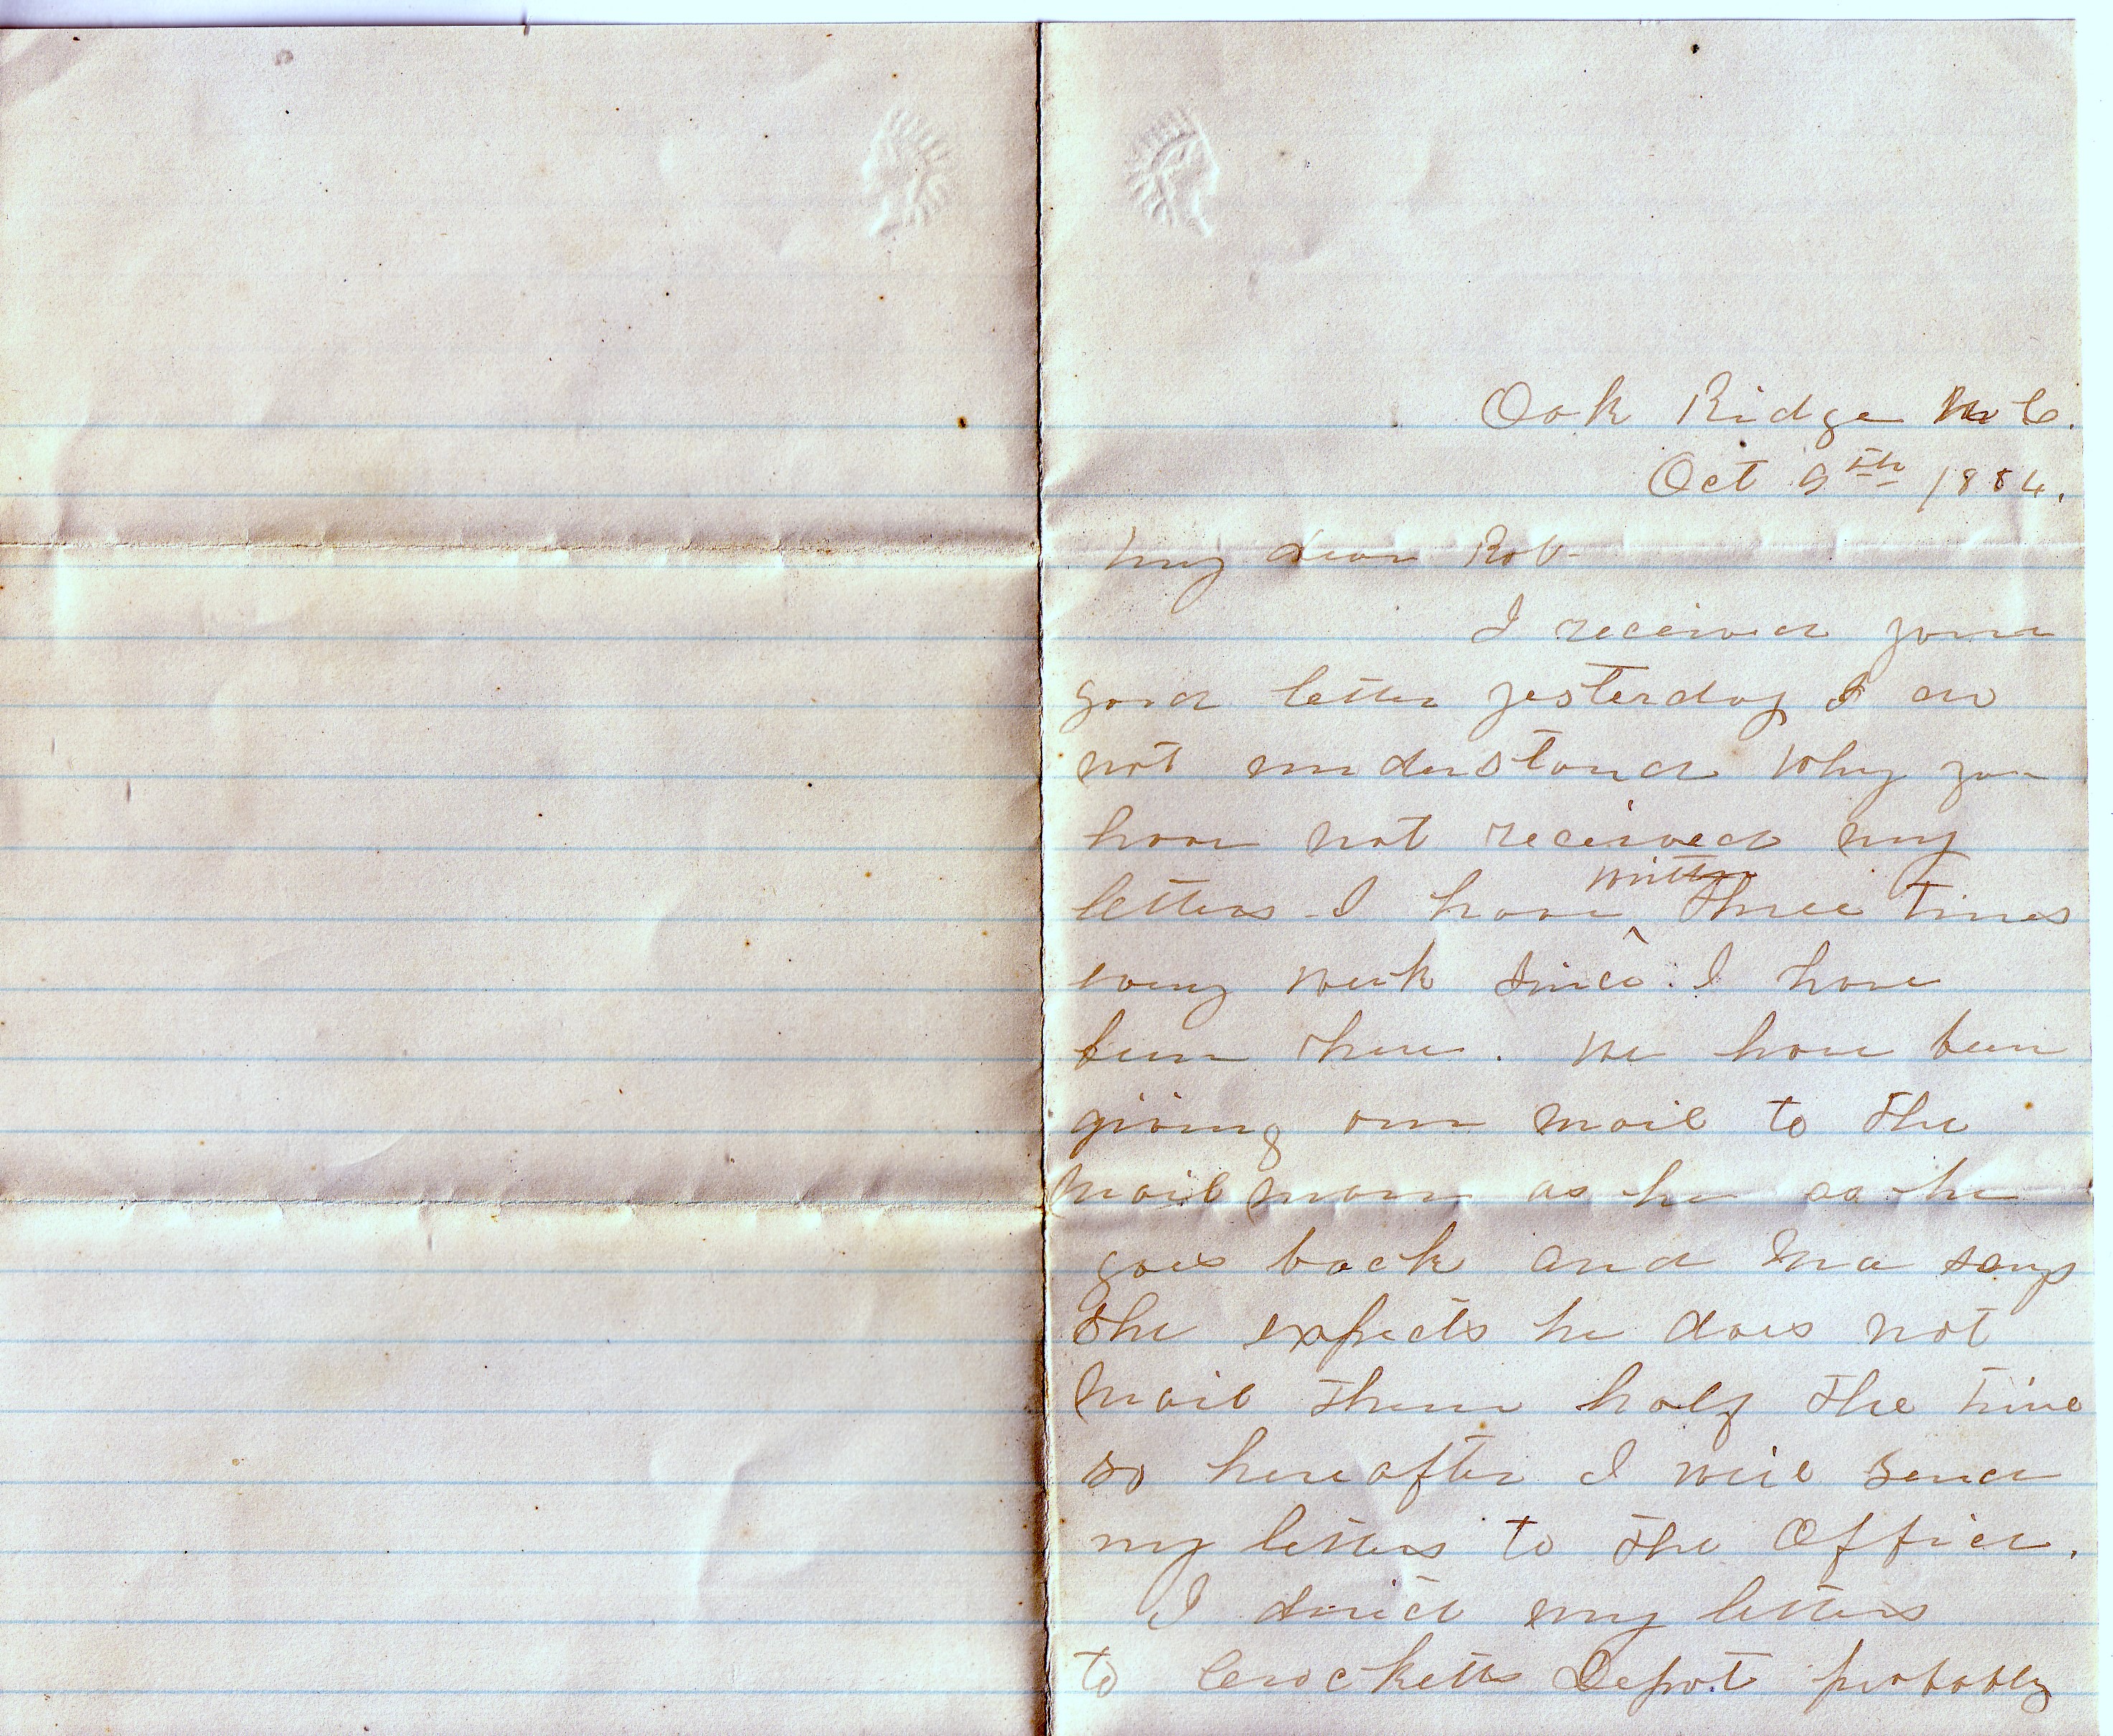 Oak Ridge N C.
Oct 9th 1884.
My dear Rob-
I received your
good letter yesterday I do
not understand why you
have not received my
letters - I have written three times
every week since I have
been here. We have been
giving our mail to the
mail man as he as he
goes back and Ma says
she expects he does not
mail them half the time
so hereafter I will send
my letters to the Office.
I direct my letters
to Crocketts Depot probably